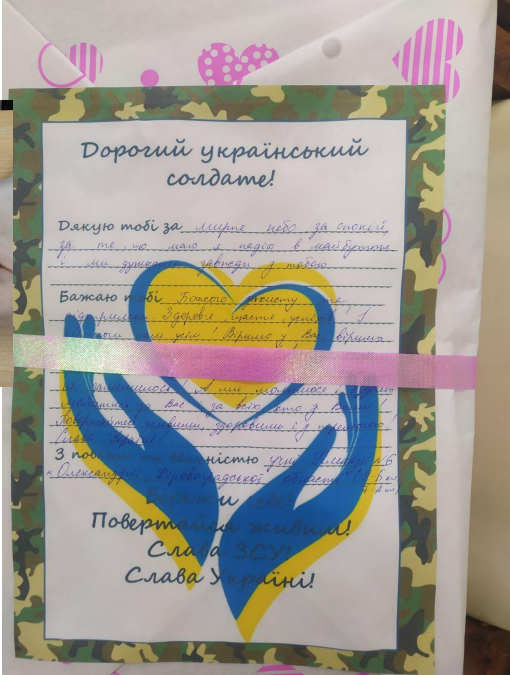 Дорогий український
солдате!
Дякую тобі за мирне небо за спокій,
за те що маю я надію в майбутньое
і ми думками завжди з тобою
Бажаю тобі Божого захисту та
підтримки. Здоров'я щастя і успіхів! І
усім! Віримо у Вас, віримо
А ми молимося і будемо
молитися за Вас і за всіх хто з Вами!
Повертайтеся живими, здоровими і з перемогою!
Слава Україні!
З повагою та вдячністю учні Гімназії №6
м. Олександрії Кіровоградської області
Бережи себе!
Повертайся живим!
Слава ЗСУ!
Слава Україні!